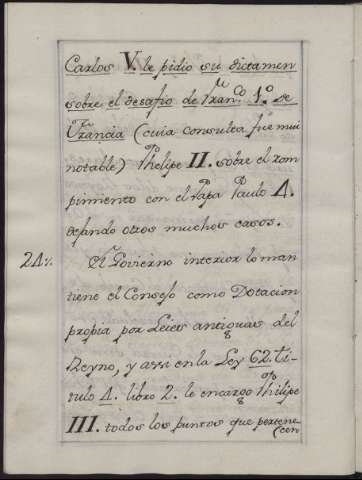 Carlos V. le pidio su dictamen
sobre el desafio de Fran.co 1.o de
Francia (cuia consulta fue mui
notable) Phelipe II. sobre el rom
pimento con el Papa Paulo 4.
dejando otros muchos casos.
24.
El Govierno interior lo man
tiene el Consejo como Dotacion
propia por Leies antiguas del
Reyno, y assi en la Ley 62. Ti-
tulo 4. libro 2. le encargo Philipe
III. todos los puntos que pertene-
cen